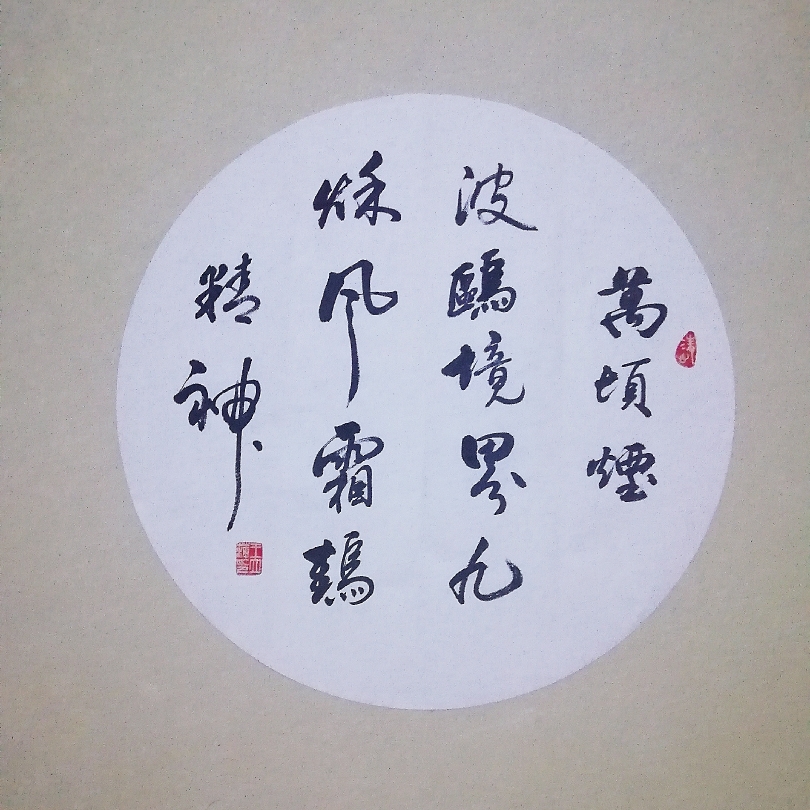 萬頃煙
波鷗境界九
秌風霜鶴
精神